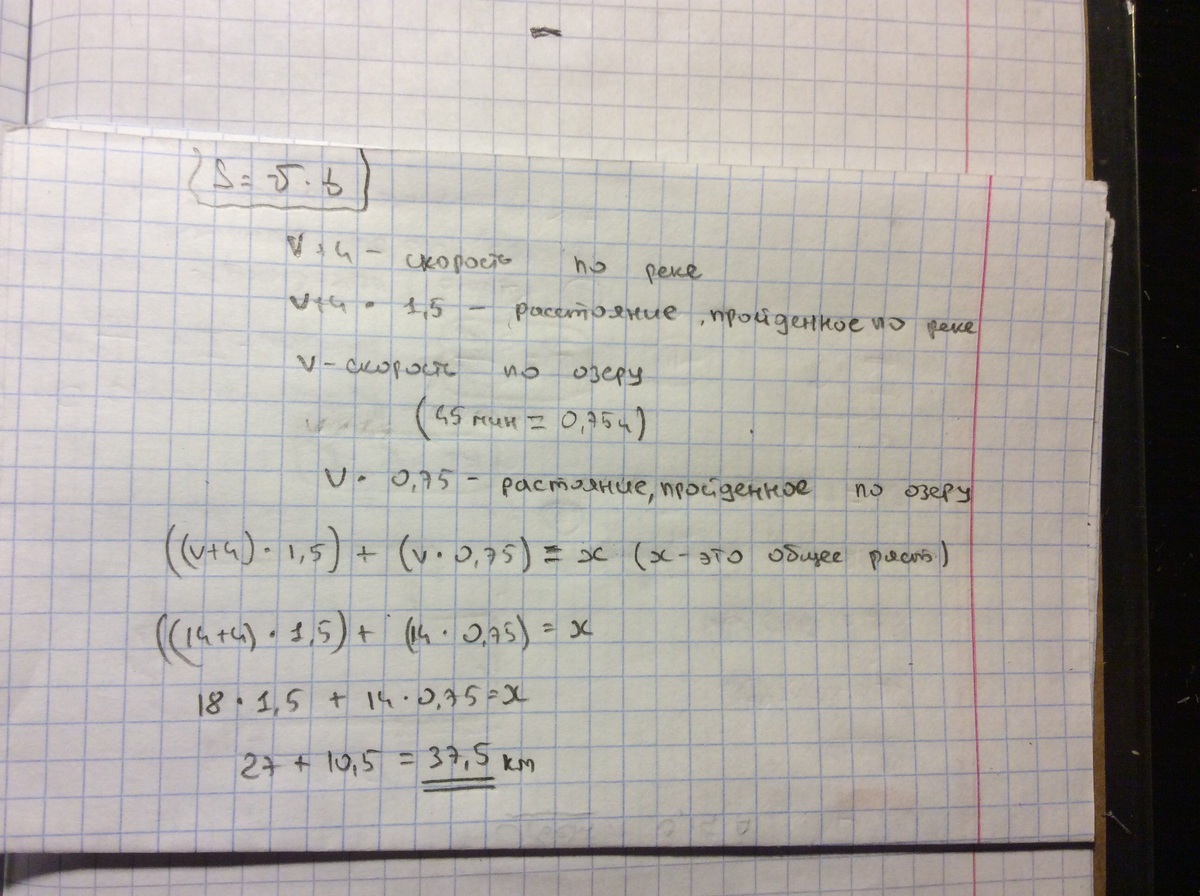 S = v · t
v + 4 – скорость по реке
v+4 · 1,5 – расстояние, пройденное по реке
v – скорость по озеру
(45 мин = 0,75 ч)
v · 0,75 – растояние, пройденное по озеру
((v+4) · 1,5) + (v · 0,75) = x (x – это общее раст)
((14+4) · 1,5) + (14 · 0,75) = x
18 · 1,5 + 14 · 0,75 = x
27 + 10,5 = 37,5 км